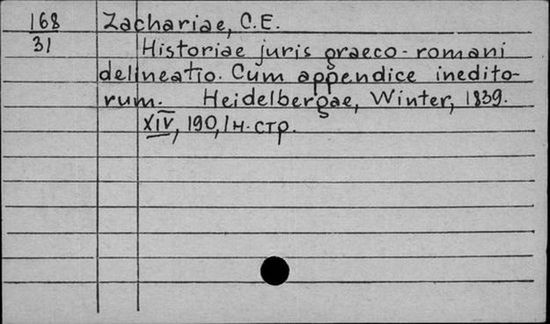 168 Zachariae, C.E.
31 Historiae juris graeco-romani
delineatio. Cum appendice inedito-
rum. Heidelbergae, Winter, 1839.
XIV, 190, 1 н. стр.